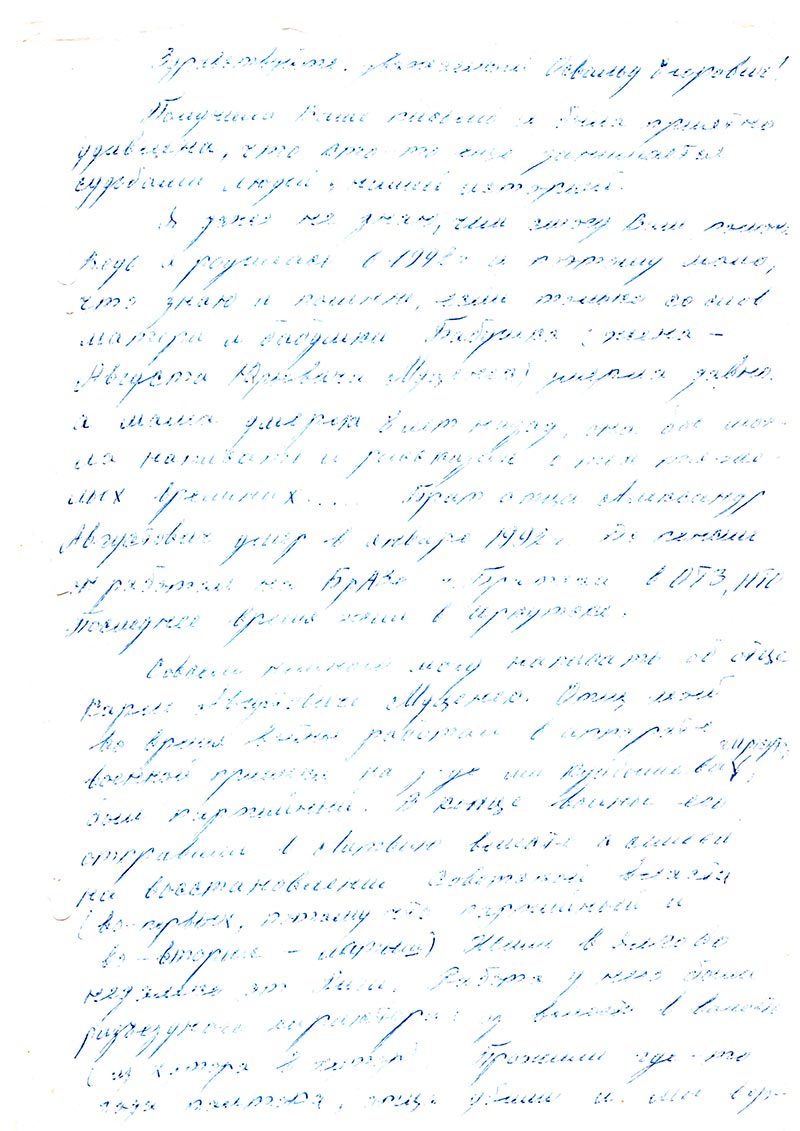 Здравствуйте, уважаемый Освальд Егорович!
Получила Ваше письмо и была приятно
удивлена, что кто-то еще занимается
судьбами людей, нашей историей.
Я даже не знаю, чем смогу Вам помочь
Ведь я родилась в 1942г и поэтому мало,
что знаю и помню, если только со слов
матери и бабушки. Бабушка (жена -
Августа Юрьевича Муценека) умерла давно,
а мама умерла 8 лет назад, она бы мог-
ла написать и рассказать о тех тяже-
лых временах..... Брат отца Александр
Августович умер в январе 1992г. До пенсии
работал на БрАЗе г. Братска в ОТЗ,
Последнее время жил в Иркутске.
Совсем немного могу написать об отце
Карле Августовиче Муценек. Отец мой
во время войны работал в аппарате
военной приемки на з-де им Куйбышева,
был партийный. В конце войны его
отправили в Латвию вместе с семьей
на восстановление Советской власти
(во-первых, потому что партийный и
во-вторых - латыш) Жили в Элгаво
недалеко от Риги. Работа у него была
разъездного характера: из волости в волость
(из хутора в хутор). Прожили где-то
года полтора, отца убили и мы